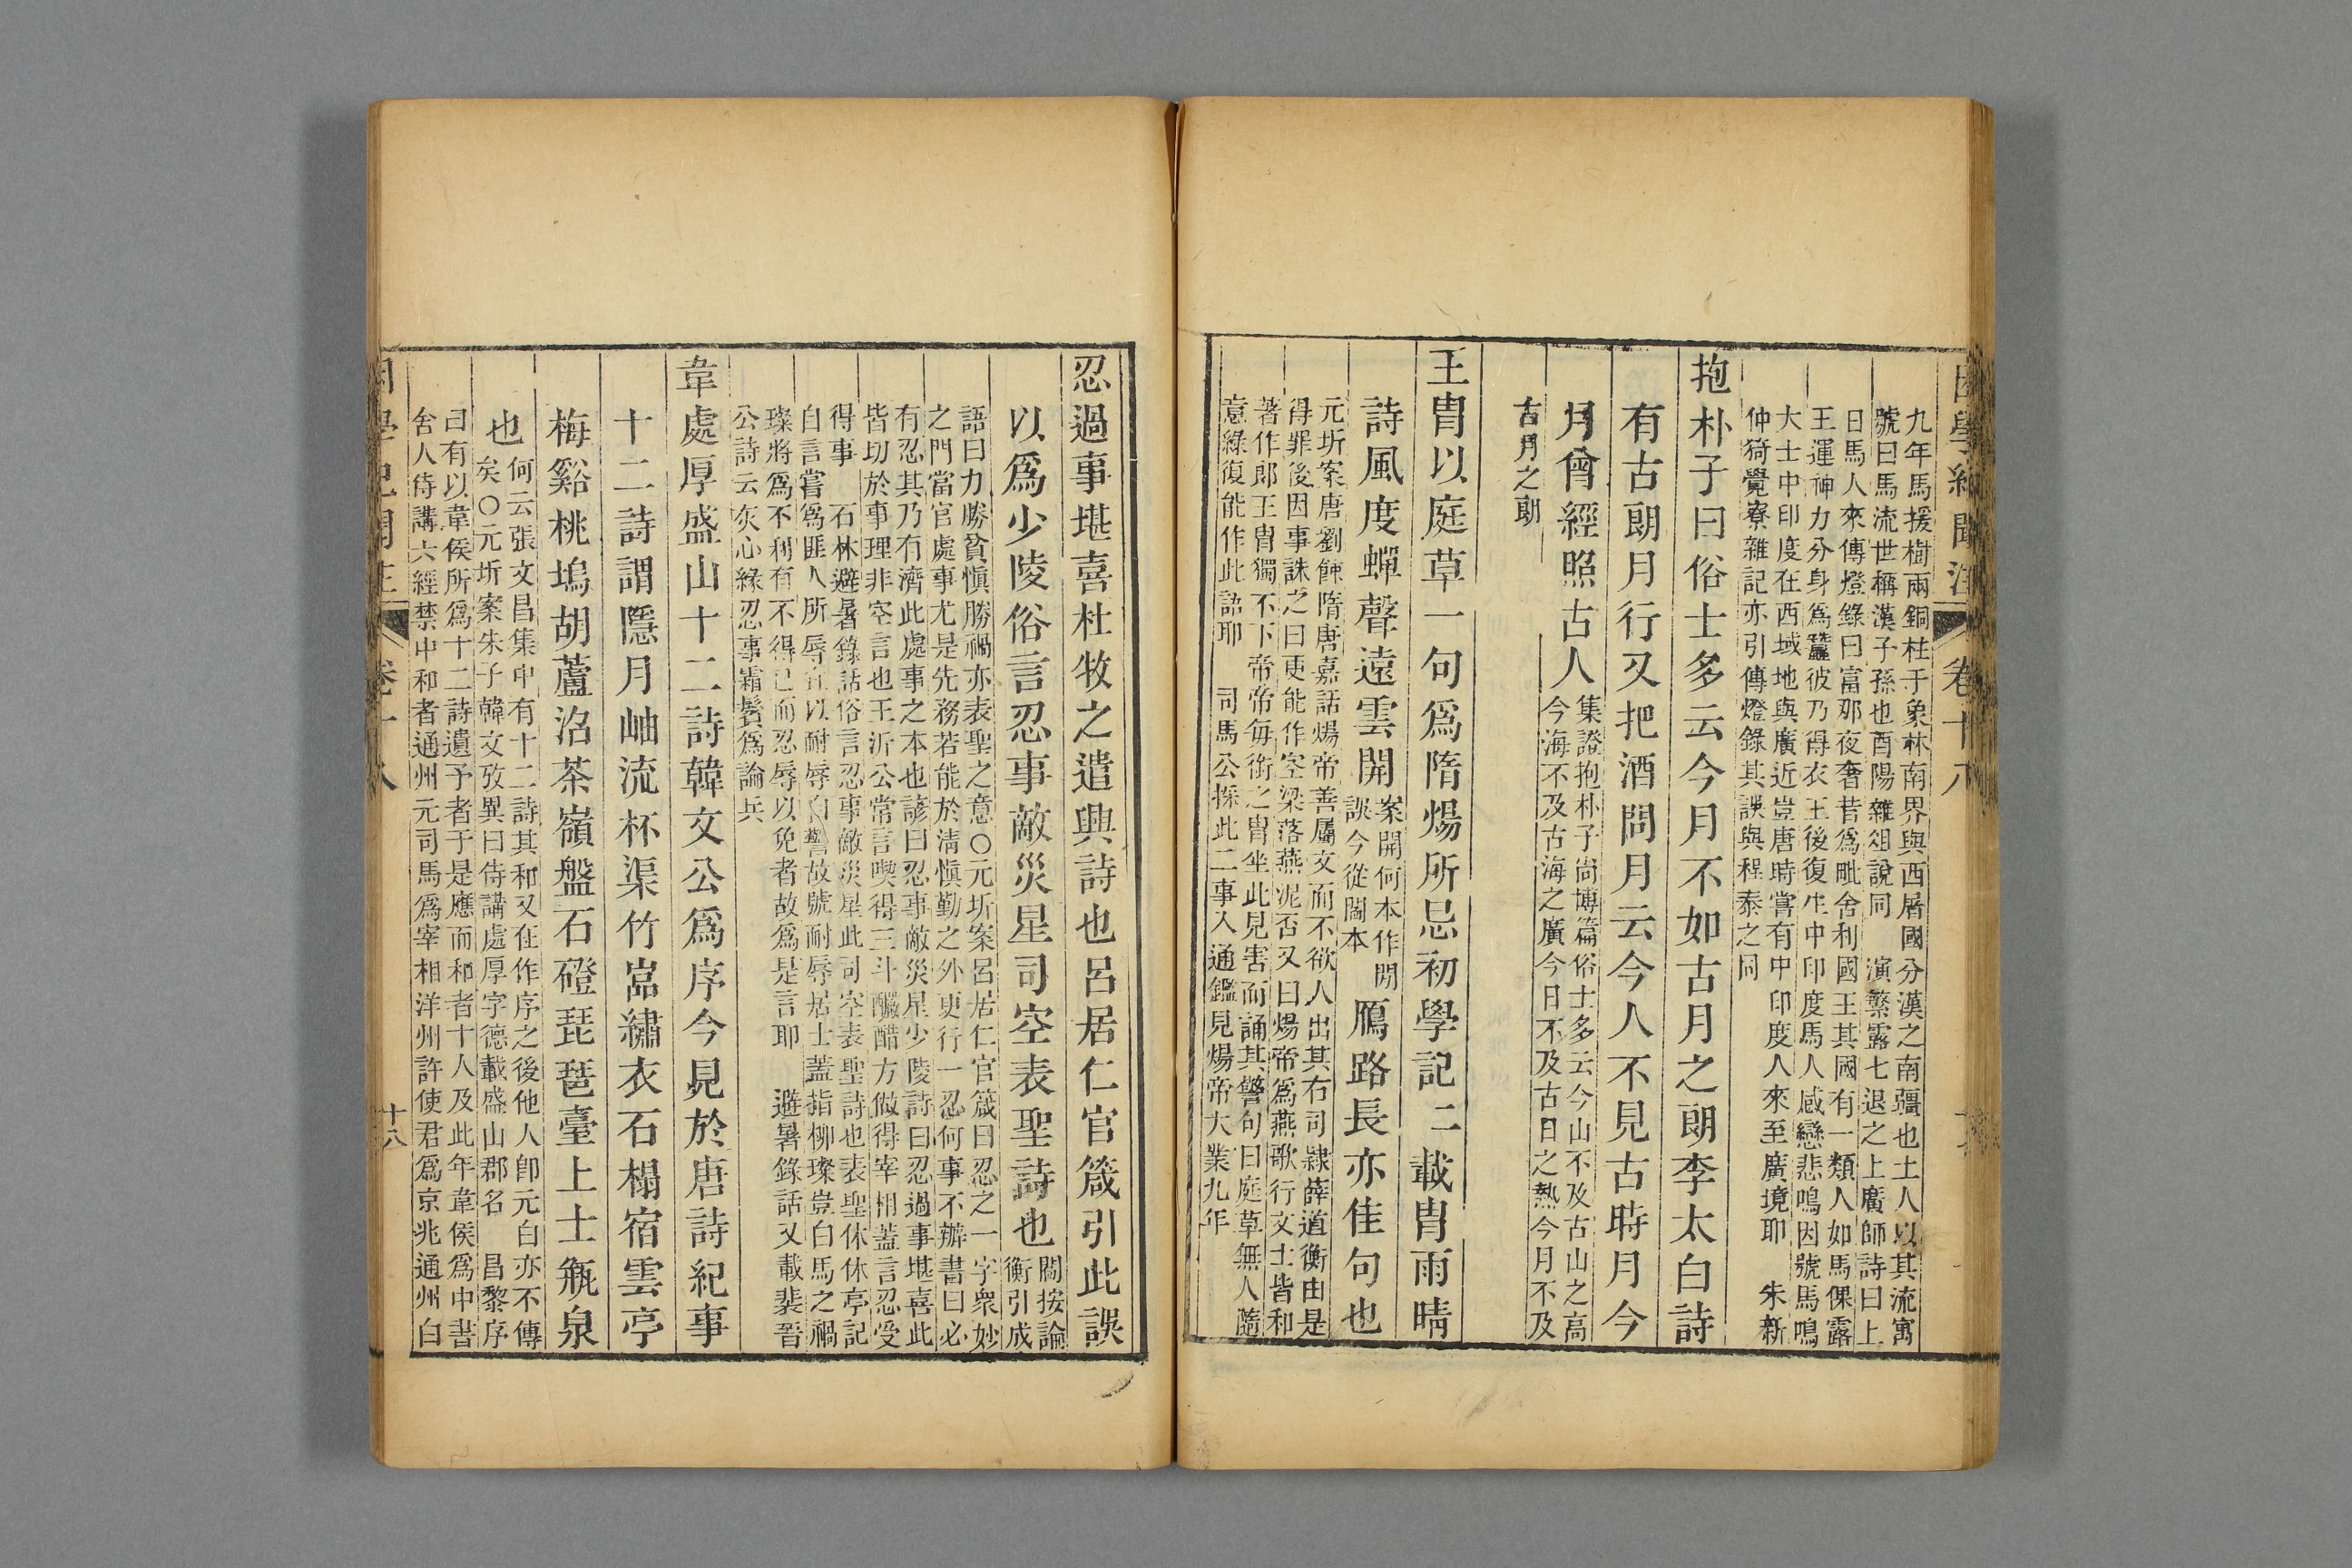 困學紀聞注 卷十八
九年馬援樹兩銅柱于象林南界與西屠國分漢之南疆也土人以其流寓
號曰馬流世稱漢子孫也酉陽雜俎說同 演繁露七退之上廣師詩曰上
日馬人來傳燈錄曰富那夜奢昔爲毗舍利國王其國有一類人如馬倮露
王運神力分身爲蠶彼乃得衣王後復生中印度馬人感戀悲鳴因號馬鳴
大士中印度在西域地與廣近豈唐時嘗有中印度人來至廣境耶 朱新
仲猗覺寮雜記亦引傳燈錄其誤與程泰之同
抱朴子曰俗士多云今月不如古月之朗李太白詩
有古朗月行又把酒問月云今人不見古時月今
月曾經照古人
集證抱朴子尚博篇俗士多云今山不及古山之高
今海不及古海之廣今日不及古日之熱今月不及
古月之朗
王胄以庭草一句爲隋煬所忌初學記二載胄雨晴
詩風度蟬聲遠雲開
案開何本作閒
誤今從閣本
鴈路長亦佳句也
元圻案唐劉餗隋唐嘉話煬帝善屬文而不欲人出其右司隸薛道衡由是
得罪後因事誅之曰更能作空梁落燕泥否又曰煬帝爲燕歌行文士皆和
著作郎王胄獨不下帝帝每銜之胄坐此見害而誦其警句曰庭草無人隨
意綠復能作此語耶 司馬公採此二事入通鑑見煬帝大業九年
忍過事堪喜杜牧之遣興詩也呂居仁官箴引此誤
以爲少陵俗言忍事敵災星司空表聖詩也
閻按論
衡引成
語曰力勝貧愼勝禍亦表聖之意○元圻案呂居仁官箴曰忍之一字衆妙
之門當官處事尤是先務若能於淸愼勤之外更行一忍何事不辦書曰必
有忍其乃有濟此處事之本也諺曰忍事敵災星少陵詩曰忍過事堪喜此
皆切於事理非空言也王沂公常言喫得三斗釅醋方做得宰相蓋言忍受
得事 石林避暑錄話俗言忍事敵災星此司空表聖詩也表聖休休亭記
自言嘗爲匪人所辱宜以耐辱自警故號耐辱居士蓋指柳璨豈白馬之禍
璨將爲不利有不得已而忍辱以免者故爲是言耶 避暑錄話又載裴晉
公詩云灰心緣忍事霜鬢爲論兵
韋處厚盛山十二詩韓文公爲序今見於唐詩紀事
十二詩謂隱月岫流杯渠竹嵓繡衣石榻宿雲亭
梅谿桃塢胡蘆沼茶嶺盤石磴琵琶臺上士瓶泉
也
何云張文昌集中有十二詩其和又在作序之後他人卽元白亦不傳
矣○元圻案朱子韓文攷異曰侍講處厚字德載盛山郡名 昌黎序
曰有以韋侯所爲十二詩遺予者于是應而和者十人及此年韋侯爲中書
舍人侍講六經禁中和者通州元司馬爲宰相洋州許使君爲京兆通州白
困學紀聞注 卷十八 十八